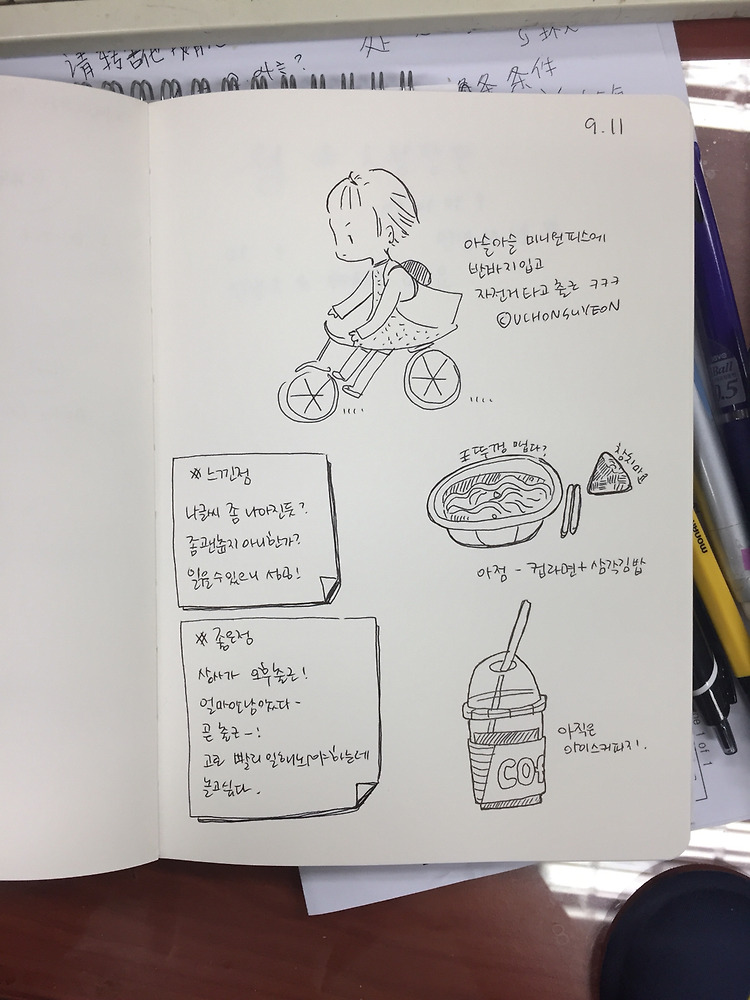 请转
处
条件
9.11
아슬아슬 미니원피스에
반바지입고
자전거타고 출근 ㅋㅋㅋ
©UCHONSUYEON
※ 느낀점
나글씨 좀 나아진듯?
좀괜춚지 아니한가?
읽을수있으니 성공!
뚜껑 맵다?
참치마요
아점 - 컵라면+삼각김밥
※ 좋은점
상사가 오후출근!
얼마안남았다-
곧 출근-!
고로 빨리 일해놔야하는데
놀고싶다.
COF
아직은
아이스커피지!
Ball
0.5
monami
1 of 1